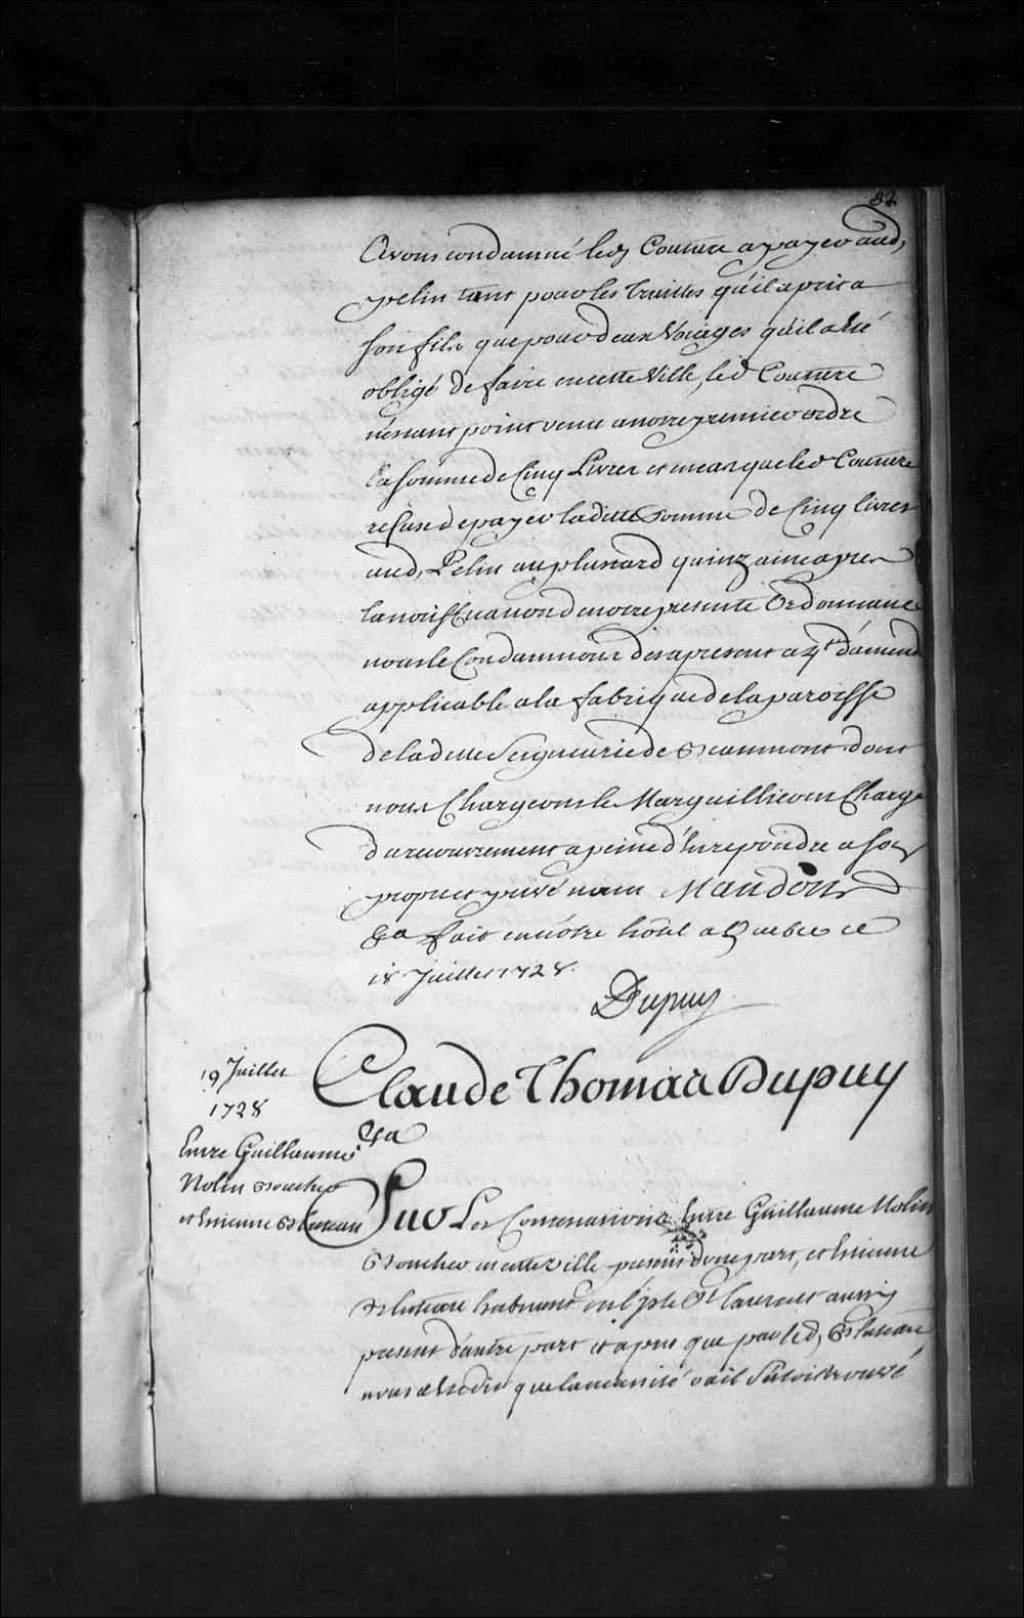 Avons condamné led Couture a payer aud,
pelin tant pour les truittes qu'il a pris a
son fils que pour deux Voiages qu'il a eté
obligé de faire en cette Ville, led Couture
n'estant point venu a notre premier ordre
la somme de Cinq Livres et en cas que led Couture
refuse de payer ladite somme de Cinq livres
aud, Pelin au plus tard quinzaine apres
la notiffication de notre presente Ordonnance
nous le Condamnons des apresent a d'amende
applicable a la fabrique de la paroisse
de ladite Seigneurie de Beaumont dont
nous Chargeons le Marguillier en Charge
du recouvrement a peine d'en repondre a son
propre et privé nom Mandons
&a fait en nôtre hôtel a Quebec ce
18 Juillet 1728.
Dupuy
19 Juillet
1728
Entre Guillaume
Nolin Boucher
et Etienne Bluteau
Claude Thomas Dupuy
&a
Sur Les Contestations Entre Guillaume Nolin
Boucher en cette ville present d'une part, et Etienne
Bluteau habitant en l'isle St laurent aussy
present d'autre part et apres que par led, Bluteau
nous a eté dit que la necessité où il s'étoit trouvé